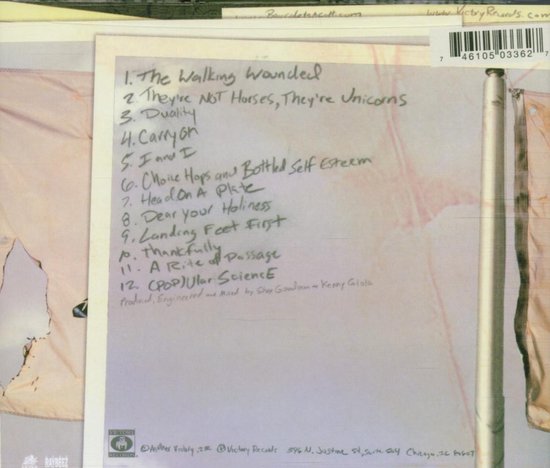 www.VictoryRecords.com
7 46105 03362 7
1. The Walking Wounded
2. They're Not Horses, They're Unicorns
3. Duality
4. Carry on
5. I and I
6. Choice Hops and Bottled Self Esteem
7. Head On A Plate
8. Dear Your Holiness
9. Landing Feet First
10. Thankfully
11. A Rite of Passage
12. (POP)Ular SciencE
Produced, Engineered and Mixed by Shep Goodman + Kenny Gioia
VICTORY
RECORDS
© Victory Records 346 N. Justine St, Suite 504 Chicago, IL 60607